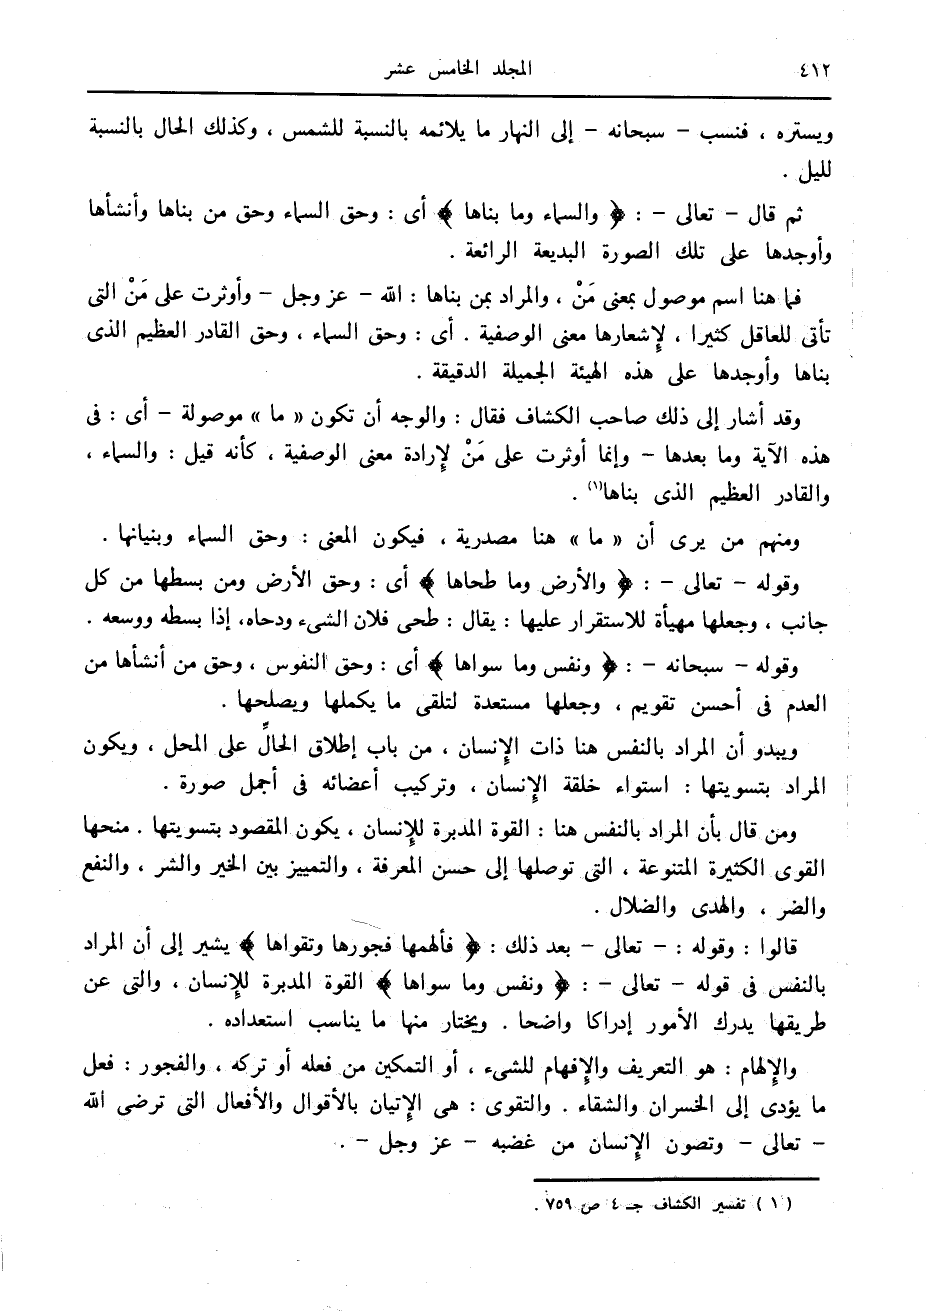 ٤١٢ المجلد الخامس عشر
ويستره ، فنسب - سبحانه - إلى النهار ما يلائمه بالنسبة للشمس ، وكذلك الحال بالنسبة
لليل .
ثم قال - تعالى - : ﴿ والسماء وما بناها ﴾ أى : وحق السماء وحق من بناها وأنشأها
وأوجدها على تلك الصورة البديعة الرائعة .
فما هنا اسم موصول بمعنى مَنْ ، والمراد بمن بناها : الله - عز وجل - وأوثرت على مَنْ التى
تأتى للعاقل كثيرا ، لإِشعارها معنى الوصفية . أى : وحق السماء ، وحق القادر العظيم الذى
بناها وأوجدها على هذه الهيئة الجميلة الدقيقة .
وقد أشار إلى ذلك صاحب الكشاف فقال : والوجه أن تكون « ما » موصولة - أى : فى
هذه الآية وما بعدها - وإنما أوثرت على مَنْ لإِرادة معنى الوصفية ، كأنه قيل : والسماء ،
والقادر العظيم الذى بناها(١) .
ومنهم من يرى أن « ما » هنا مصدرية ، فيكون المعنى : وحق السماء وبنيانها .
وقوله - تعالى - : ﴿ والأرض وما طحاها ﴾ أى : وحق الأرض ومن بسطها من كل
جانب ، وجعلها مهيأة للاستقرار عليها : يقال : طحى فلان الشىء ودحاه، إذا بسطه ووسعه .
وقوله - سبحانه - : ﴿ ونفس وما سواها ﴾ أى : وحق النفوس ، وحق من أنشأها من
العدم فى أحسن تقويم ، وجعلها مستعدة لتلقى ما يكملها ويصلحها .
ويبدو أن المراد بالنفس هنا ذات الإِنسان ، من باب إطلاق الحالِّ على المحل ، ويكون
المراد بتسويتها : استواء خلقة الإِنسان ، وتركيب أعضائه فى أجمل صورة .
ومن قال بأن المراد بالنفس هنا : القوة المدبرة للإِنسان ، يكون المقصود بتسويتها . منحها
القوى الكثيرة المتنوعة ، التى توصلها إلى حسن المعرفة ، والتمييز بين الخير والشر ، والنفع
والضر ، والهدى والضلال .
قالوا : وقوله : - تعالى - بعد ذلك : ﴿ فألهمها فجورها وتقواها ﴾ يشير إلى أن المراد
بالنفس فى قوله - تعالى - : ﴿ ونفس وما سواها ﴾ القوة المدبرة للإِنسان ، والتى عن
طريقها يدرك الأمور إدراكا واضحا . ويختار منها ما يناسب استعداده .
والإِلهام : هو التعريف والإِفهام للشىء ، أو التمكين من فعله أو تركه ، والفجور : فعل
ما يؤدى إلى الخسران والشقاء . والتقوى : هى الإِتيان بالأقوال والأفعال التى ترضى الله
- تعالى - وتصون الإِنسان من غضبه - عز وجل - .
( ١ ) تفسير الكشاف جـ ٤ ص ٧٥٩ .